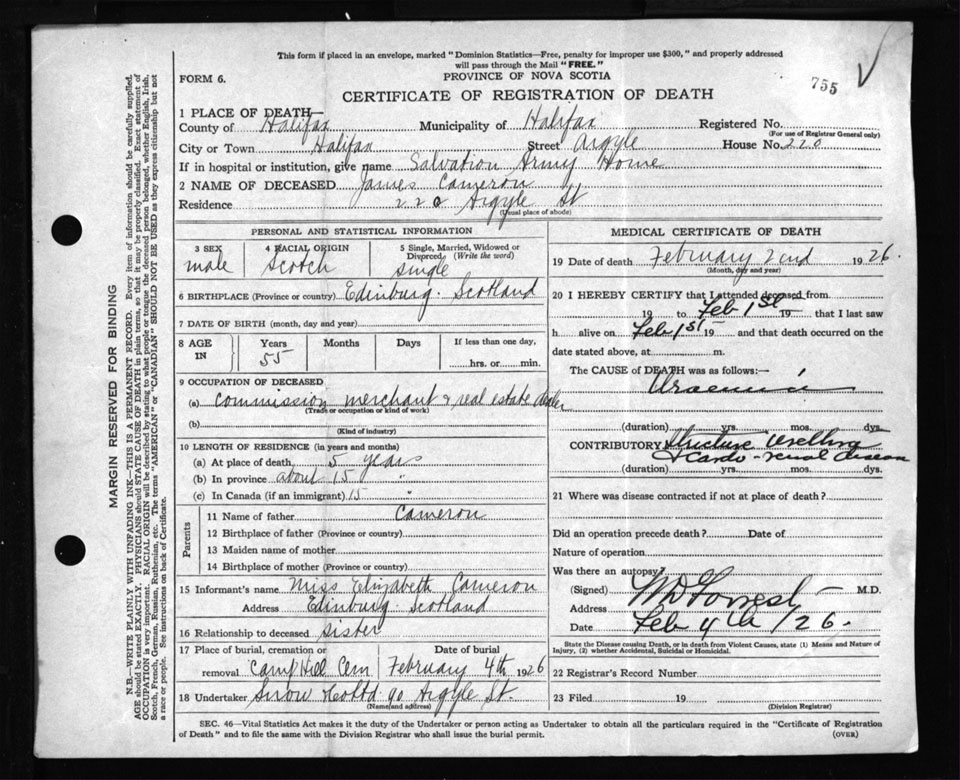 This form if placed in an envelope, marked "Dominion Statistics—Free, penalty for improper use $300," and properly addressed
will pass through the Mail "FREE."
755
FORM 6.
PROVINCE OF NOVA SCOTIA
CERTIFICATE OF REGISTRATION OF DEATH
1 PLACE OF DEATH
County of Halifax Municipality of Halifax Registered No.
(For use of Registrar General only)
City or Town Halifax Street Argyle House No. 220
If in hospital or institution, give name Salvation Army Home
2 NAME OF DECEASED James Cameron
Residence 220 Argyle St
(Usual place of abode)
PERSONAL AND STATISTICAL INFORMATION
3 SEX 4 RACIAL ORIGIN 5 Single, Married, Widowed or
Divorced (Write the word)
male Scotch single
6 BIRTHPLACE (Province or country) Edinburg. Scotland
7 DATE OF BIRTH (month, day and year)
8 AGE IN Years Months Days If less than one day,
55 hrs. or min.
9 OCCUPATION OF DECEASED
(a) Commission merchant & real estate dealer
(Trade or occupation or kind of work)
(b)
(Kind of industry)
10 LENGTH OF RESIDENCE (in years and months)
(a) At place of death 5 years
(b) In province about 15 "
(c) In Canada (if an immigrant) 15 "
Parents
11 Name of father Cameron
12 Birthplace of father (Province or country)
13 Maiden name of mother
14 Birthplace of mother (Province or country)
15 Informant's name Miss Elizabeth Cameron
Address Edinburg. Scotland
16 Relationship to deceased sister
17 Place of burial, cremation or Date of burial
removal Camp Hill Cem February 4th 1926
18 Undertaker Snow & Co Ltd 90 Argyle St.
(Name and address)
MEDICAL CERTIFICATE OF DEATH
19 Date of death February 2nd 1926.
(Month, day and year)
20 I HEREBY CERTIFY that I attended deceased from
19 to Feb 1st 19 that I last saw
h alive on Feb 1st 19 and that death occurred on
date stated above, at m.
The CAUSE of DEATH was as follows:—
Uraemia
(duration) yrs. mos. dys.
CONTRIBUTORY Stricture Urethra
& Cardo-renal disease
(duration) yrs. mos. dys.
21 Where was disease contracted if not at place of death?
Did an operation precede death? Date of
Nature of operation
Was there an autopsy?
(Signed) Forrest M.D.
Address
Date Feb 4th /26.
State the Disease causing Death, or in death from Violent Causes, state (1) Means and Nature of
Injury, (2) whether Accidental, Suicidal or Homicidal.
22 Registrar's Record Number
23 Filed 19
(Division Registrar)
SEC. 46—Vital Statistics Act makes it the duty of the Undertaker or person acting as Undertaker to obtain all the particulars required in the "Certificate of Registration
of Death" and to file the same with the Division Registrar who shall issue the burial permit.
(OVER)
MARGIN RESERVED FOR BINDING
N.B.—WRITE PLAINLY WITH UNFADING INK—THIS IS A PERMANENT RECORD. Every item of information should be carefully supplied.
AGE should be stated EXACTLY. PHYSICIANS should STATE CAUSE OF DEATH in plain terms, so that it may be properly classified. Exact statement of
OCCUPATION is very important. RACIAL ORIGIN will be described by stating to what people or tongue the deceased person belonged, whether English, Irish,
Scotch, French, German, Russian, Ruthenian, etc. The terms "AMERICAN" or "CANADIAN" SHOULD NOT BE USED as they express citizenship but not
a race or people. See instructions on back of Certificate.